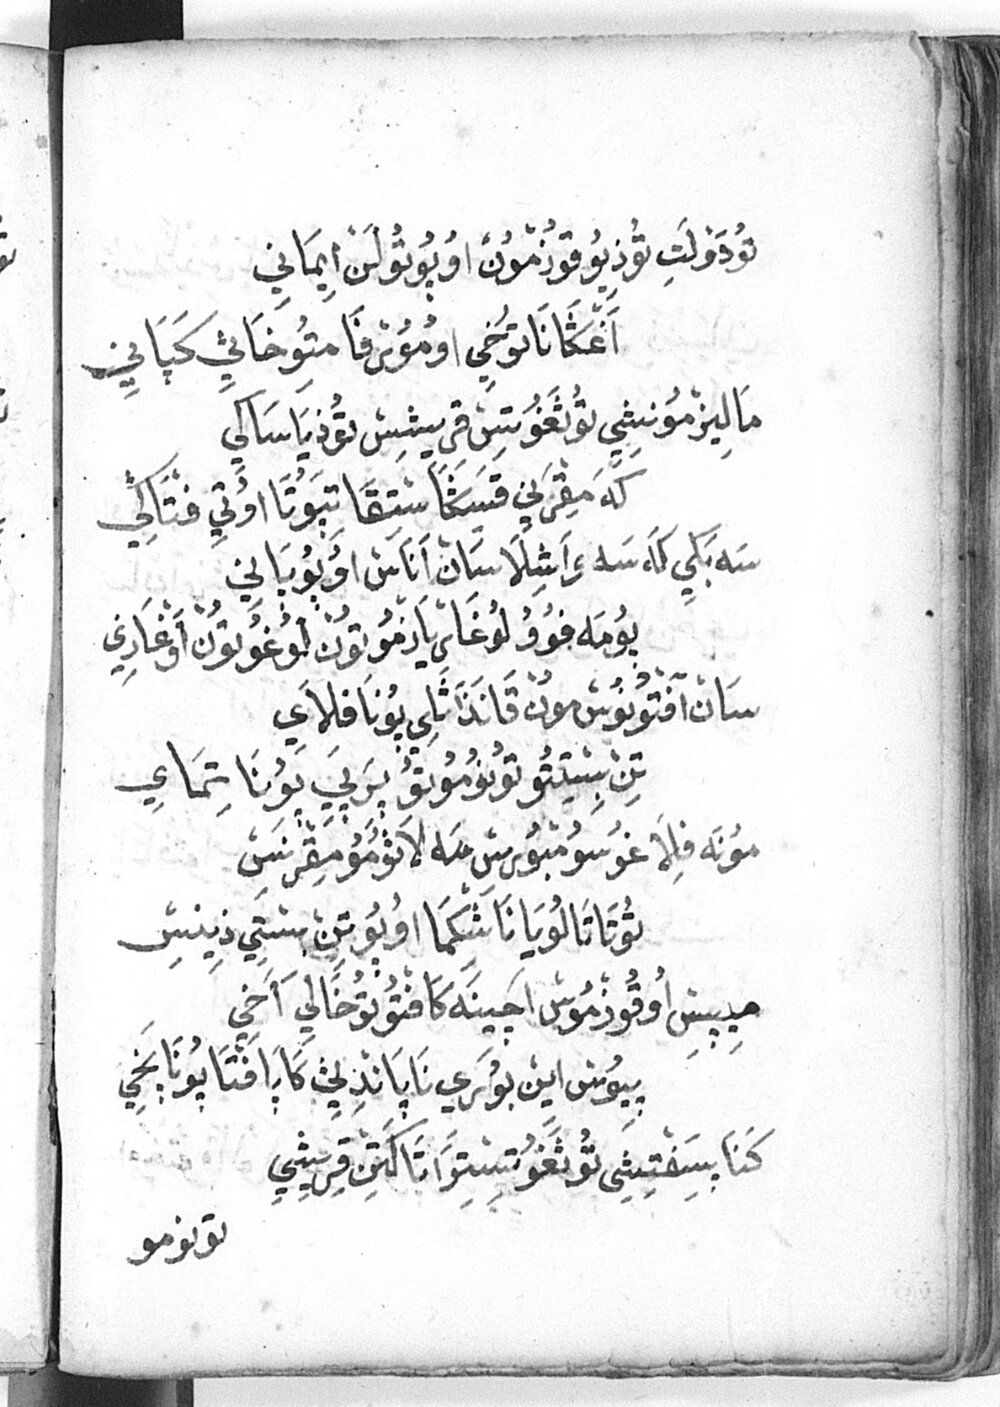 تُوْدَوْلَتِ تُوْذِيُو قُوذْمُونْ اوُ پُوتُولَنْ اِيمَانِي
اَغْكَانَا تُوخِي اوُمُوْتَرفَا مَتِوُخَانِيْ كَپَانِي
مَالِيزْمُونِشِي تُوْتَغُوتِسْ قِرِيشِسْ تُوْذِيَاسَاكِي
كَه مِقْرَنِي قَيَسَكَا سْتِقَا تِپَوُتَا اوُتِي فْتَاكِي
سَه بَكِي كَه سَه رَاشِلَا سَانْ اَنَاسْ اوُپُوپَانِي
پُومَه فُوُو لُوغَارْيَازْمُوتُونْ لُوغُوتُونْ اَوْغَازِي
سَانْ آفْتُونُوسْ مُونْ قَانَذَا تَلِي پُونَا فَلاَيِ
تِنْ بِسْتِتُو تُوْنُومُوتُو پَرِيپِيْ پُونَا تِمَايِ
مُونَه فِلَاغُوسُومْبُورِسْ سَه لاَتُومُو مِقْرِنَسْ
تُوتَاتَا لُويَانَا شَكِمَا اوُپُو تِنْ بِسْتِي ذِينِسْ
مِدِپِسْ اُوقُوذْمُوسْ اَچِينَه كَافْتُونُو خَالِي اَخِي
پِيُوسْ اِينْ بُورَي نَاپَانْذِلِيْ كَاپَا فْتَا پُونَا پَخِي
كَنَا بِسَفْتِشِي تُوْتَغُوتِسْتِوَاتَا كَتِنْ قِرِيشِي
تونومو